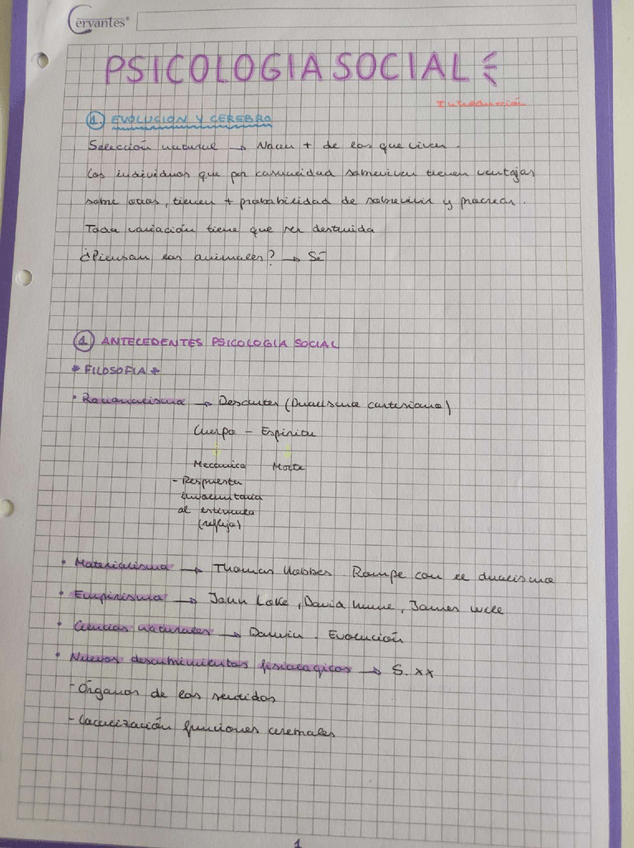 Cervantes
PSICOLOGIA SOCIAL
Introducción
1. EVOLUCIÓN Y CEREBRO
Selección natural → Nacen + de los que viven.
Los individuos que por casualidad sobreviven tienen ventajas
sobre otros, tienen + probabilidad de sobrevivir y procrear.
Toda variación tiene que ser destruida
¿Piensan los animales? → Sí
1 ANTECEDENTES PSICOLOGIA SOCIAL
* FILOSOFIA *
· Racionalismo → Descartes (Dualismo cartesiano)
Cuerpo - Espíritu
Mecanica Mente
- Respuesta
involuntaria
al estimulo
(reflejo)
· Materialismo → Thomas Hobbes Rompe con el dualismo
· Empirismo → John Loke, David Hume, James Mill
· Ciencias naturales → Darwin. Evolución
· Nuevos descubrimientos fisiologicos → S. XX
- Órganos de los sentidos
- Localización funciones cerebrales
1